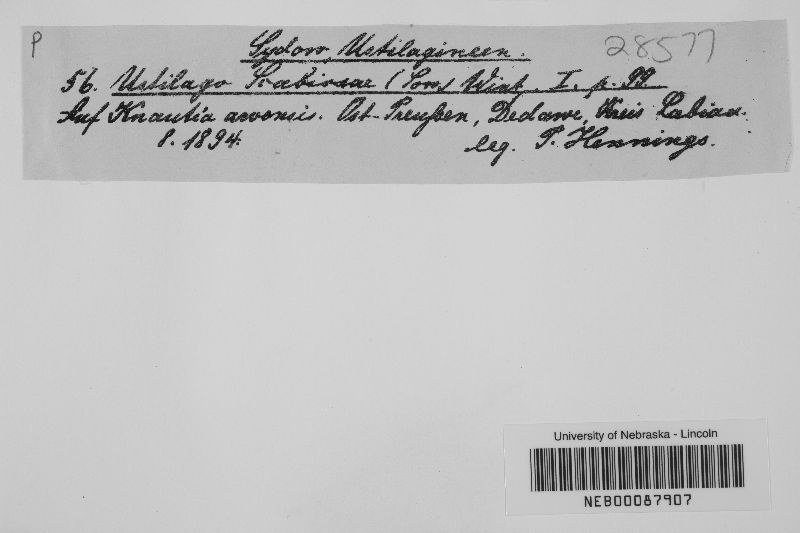 P
Sydow, Ustilagineen.
28577
56. Ustilago Scabiosae (Sow) Wint. I. p. 99
Auf Knautia arvensis. Ost-Preußen, Dedawe, Kreis Labiau.
8. 1894.
leg. P. Hennings.
University of Nebraska - Lincoln
NEB00087907